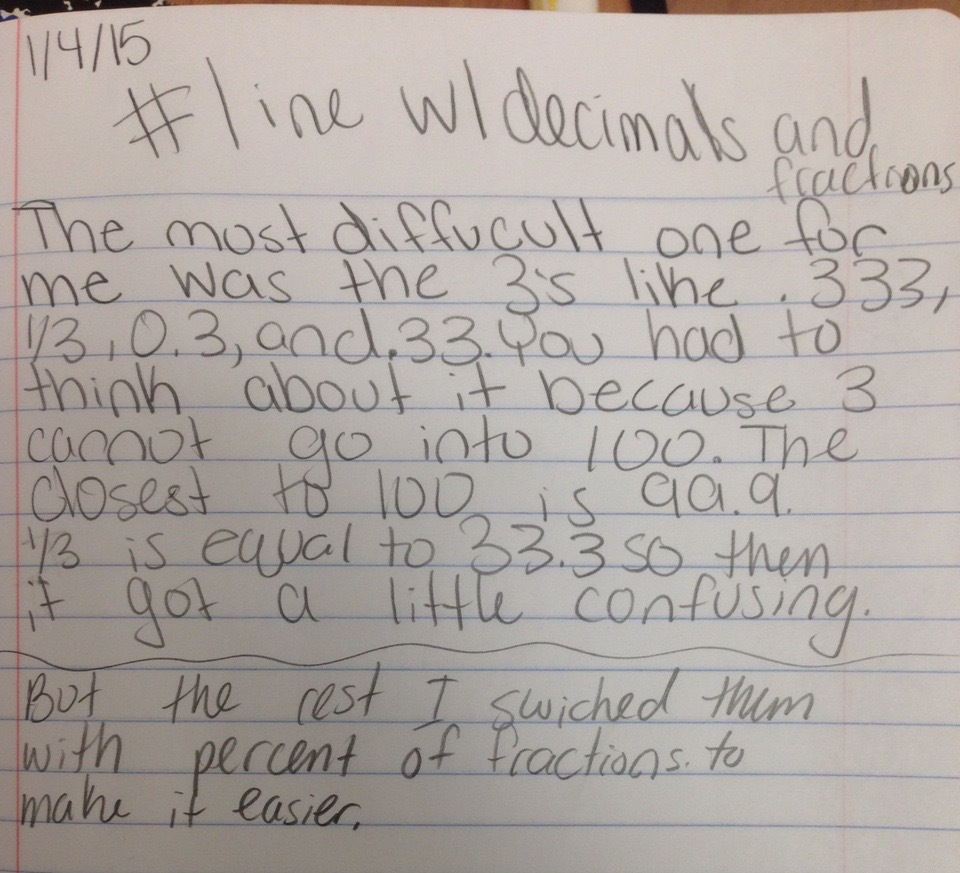 1/4/15
#line w/ decimals and
fractions
The most diffucult one for
me was the 3's like .333,
1/3, 0.3, and .33. You had to
think about it because 3
cannot go into 100. The
closest to 100 is 99.9.
1/3 is equal to 33.3 so then
it got a little confusing.
But the rest I swiched them
with percent of fractions. to
make it easier.